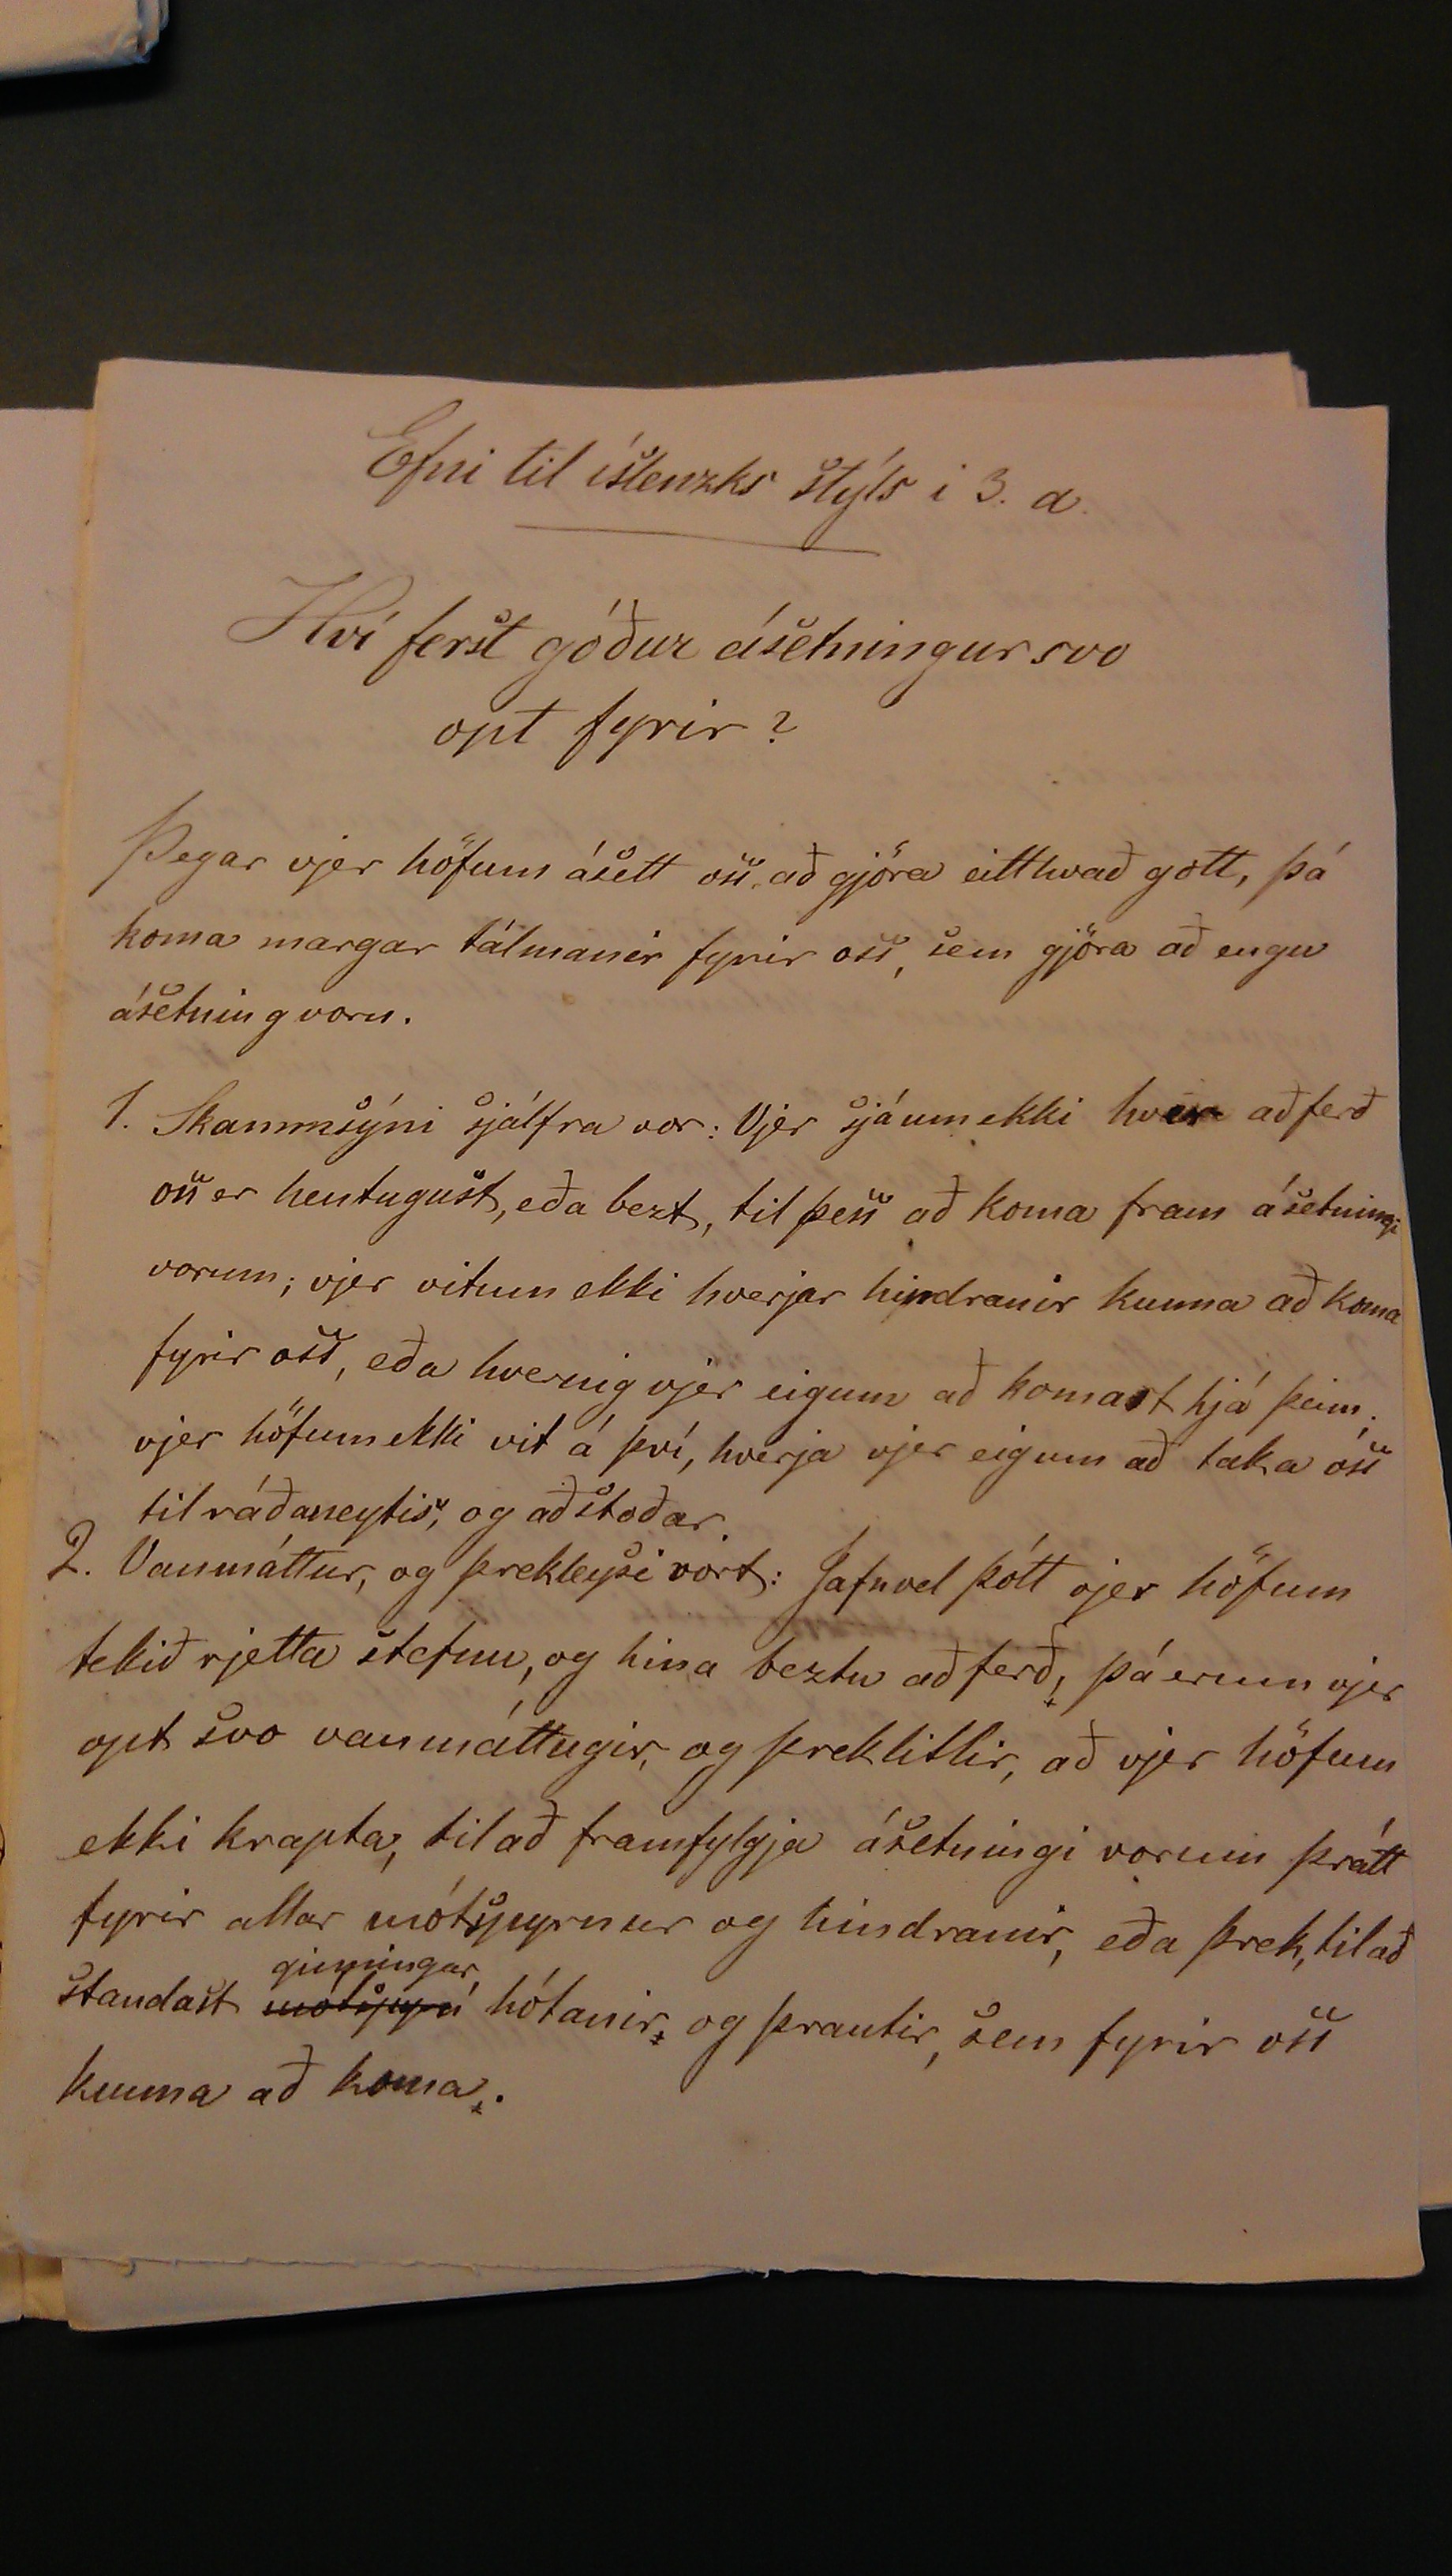 Efni til íslenzks stýls í 3. a.
Hví ferst góður ásetningur svo
opt fyrir?
Þegar vjer höfum ásett oss, að gjöra eitthvað gott, þá
koma margar tálmanir fyrir oss, sem gjöra að engu
ásetning vorn.
1. Skammsýni sjálfra vor: Vjer sjáum ekki hver aðferð
oss er hentugust, eða bezt, til þess að koma fram ásetningi
vorum; vjer vitum ekki hverjar hindranir kunna að koma
fyrir oss, eða hvernig vjer eigum að komast hjá þeim;
vjer höfum ekki vit á því, hverja vjer eigum að taka oss
til ráðaneytis, og aðstoðar.
2. Vanmáttur, og þrekleysi vort: Jafnvel þótt vjer höfum
tekið rjetta stefnu, og hina beztu aðferð, þá erum vjer
opt svo vanmáttugir, og þreklitlir, að vjer höfum
ekki krapta, til að framfylgja ásetningi vorum þrátt
fyrir allar mótspyrnur og hindranir, eða þrek, til að
ginningar,
standast mótspyrn hótanir, og þrautir, sem fyrir oss
kunna að koma.